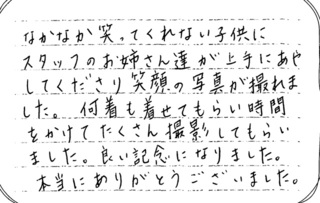 なかなか笑ってくれない子供に
スタッフのお姉さん達が上手にあや
してくださり笑顔の写真が撮れま
した。何着も着せてもらい時間
をかけてたくさん撮影してもらい
ました。良い記念になりました。
本当にありがとうございました。